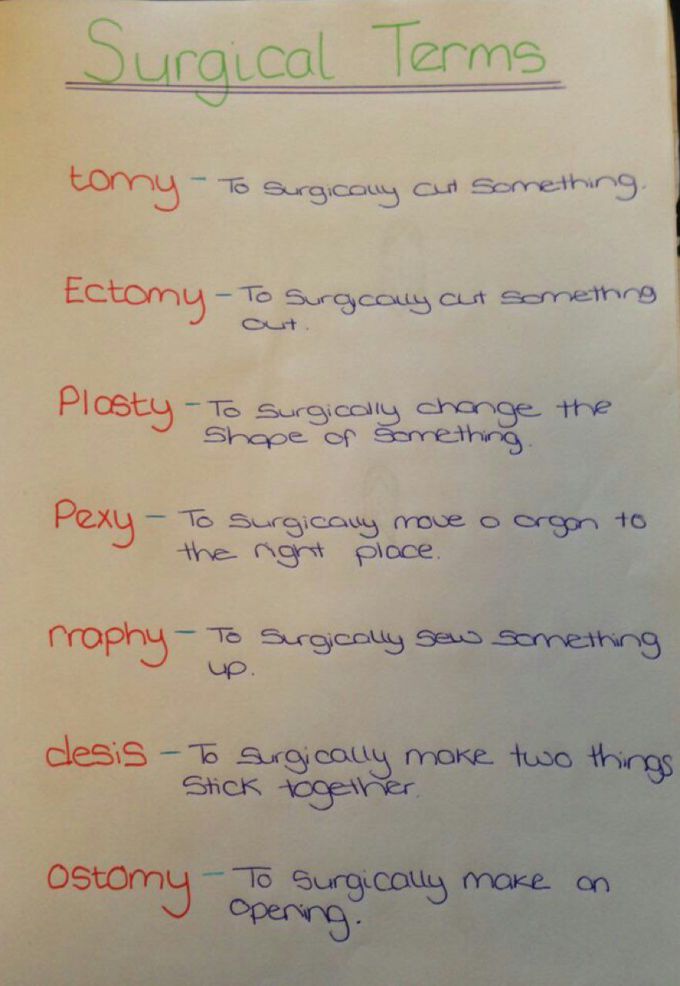 Surgical Terms
tomy - To surgically cut something.
Ectomy - To surgically cut something
out.
Plasty - To surgically change the
shape of something.
Pexy - To surgically move a organ to
the right place.
rraphy - To surgically sew something
up.
desis - To surgically make two things
stick together.
ostomy - To surgically make an
opening.